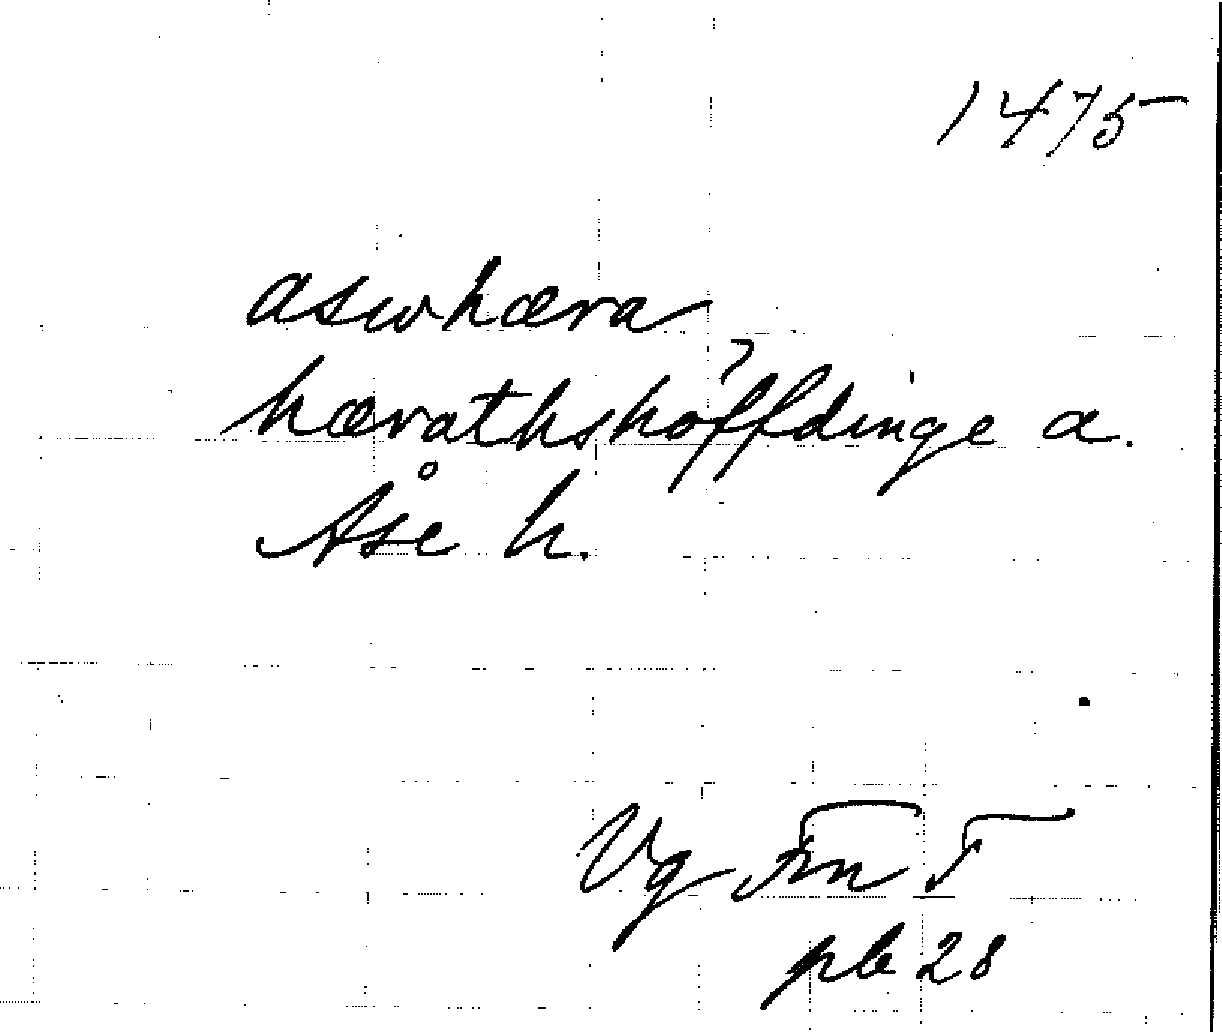 1475
aswhæra
hærathshöffdinge a.
Åse h.
Vg Fm T
plb 28